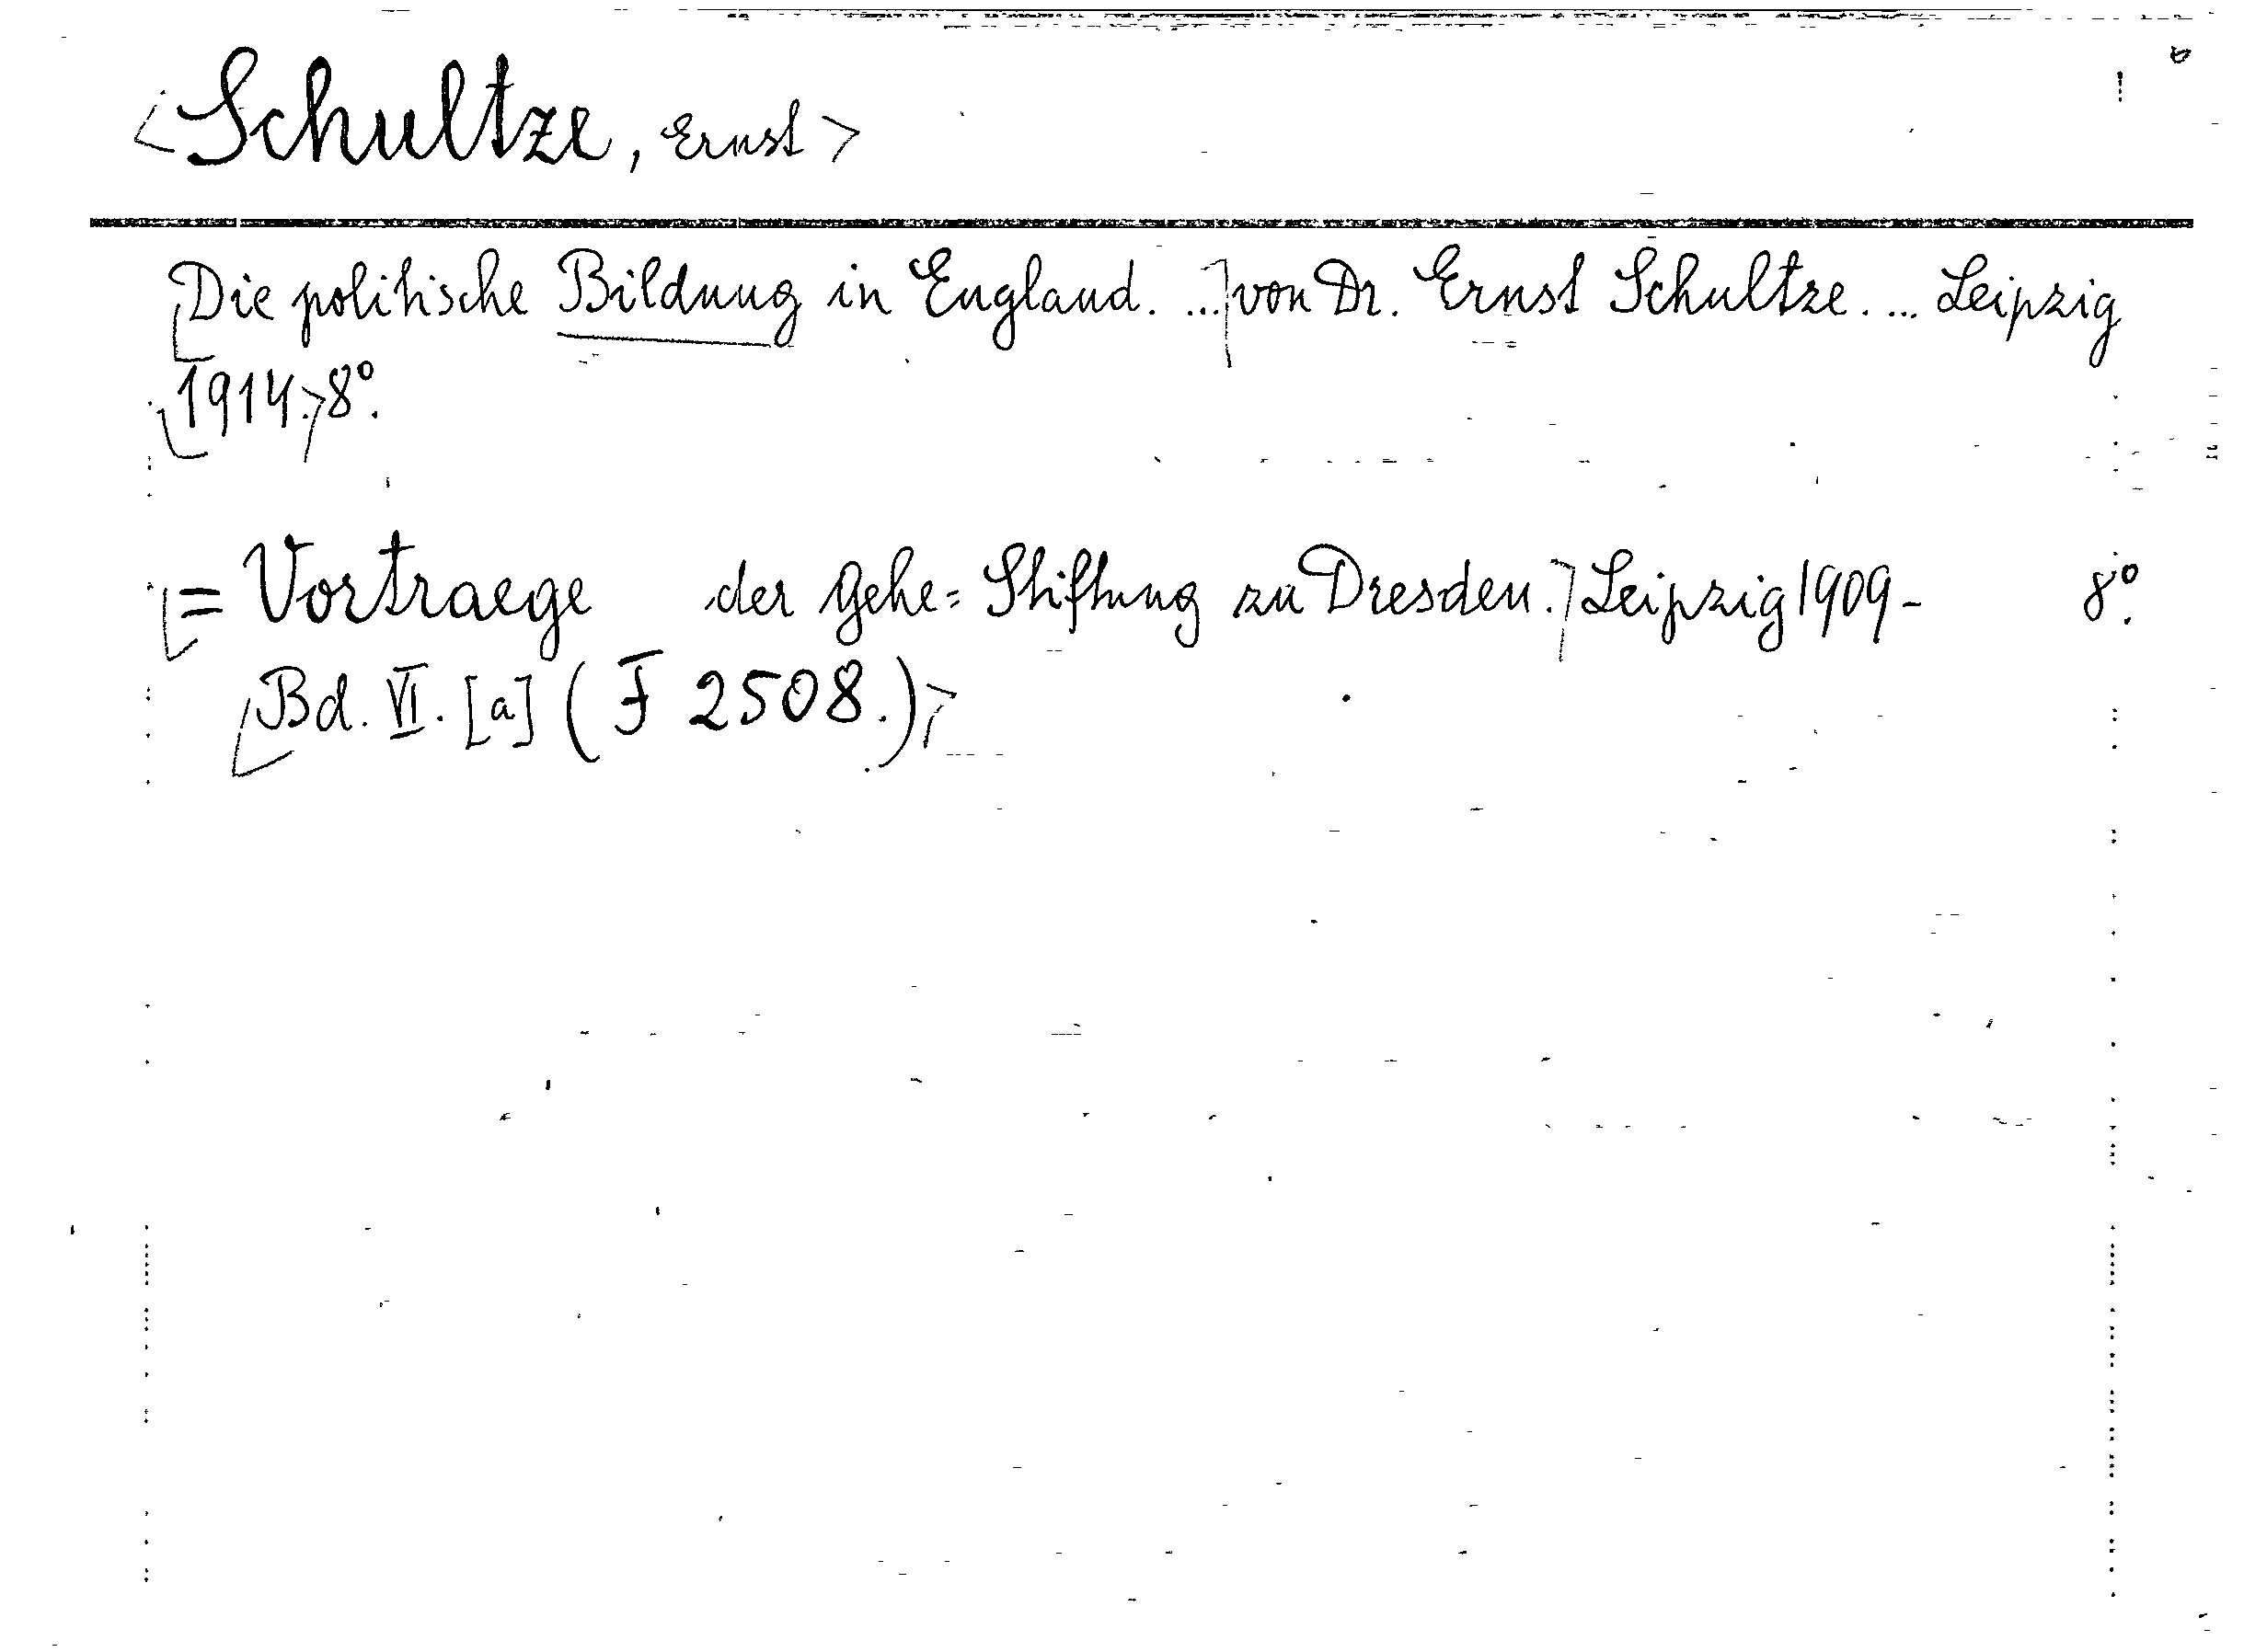 <Schultze, Ernst>
Die politische Bildung in England. ...] von Dr. Ernst Schultze. ... Leipzig
1914.> 8°.
= Vortraege der Gehe=Stiftung zu Dresden.] Leipzig 1909- 8°.
Bd. VI. [a] (F 2508.)>